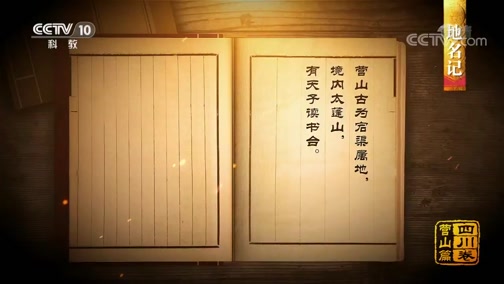 CCTV 10
科教
地名记
CCTV.com
营山古为宕渠属地，
境内太蓬山，
有天子读书台。
四川卷
营山篇